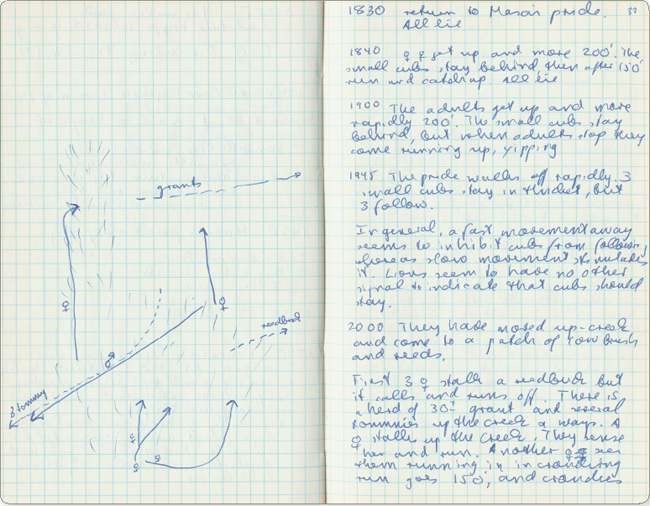 grants
♀
♀
♂
reedbuck
3 tommy
♀
♀
♀
1830 return to Masai pride. 37
All lie
1840 ♀♀ get up and move 200'. The
small cubs stay behind then after 150'
run and catching All lie
1900 The adults get up and move
rapidly 200'. The small cubs stay
behind, but when adults stop they
come running up, yipping
1945 The pride walks off rapidly. 3
small cubs stay in thicket, but
3 follow.
In general, a fast movement away
seems to inhibit cubs from following,
whereas slow movement stimulates
it. Lions seem to have no other
signal to indicate that cubs should
stay.
2000 They have moved up-creek
and come to a patch of low brush
and reeds.
First 3 ♀ stalk a reedbuck but
it calls and runs off. There is
a herd of 30± grant and several
tommies up the creek a ways. A
♀ stalks up the creek. They sense
her and run. Another ♀ sees
them running in in crouching
run goes 150', and crouches